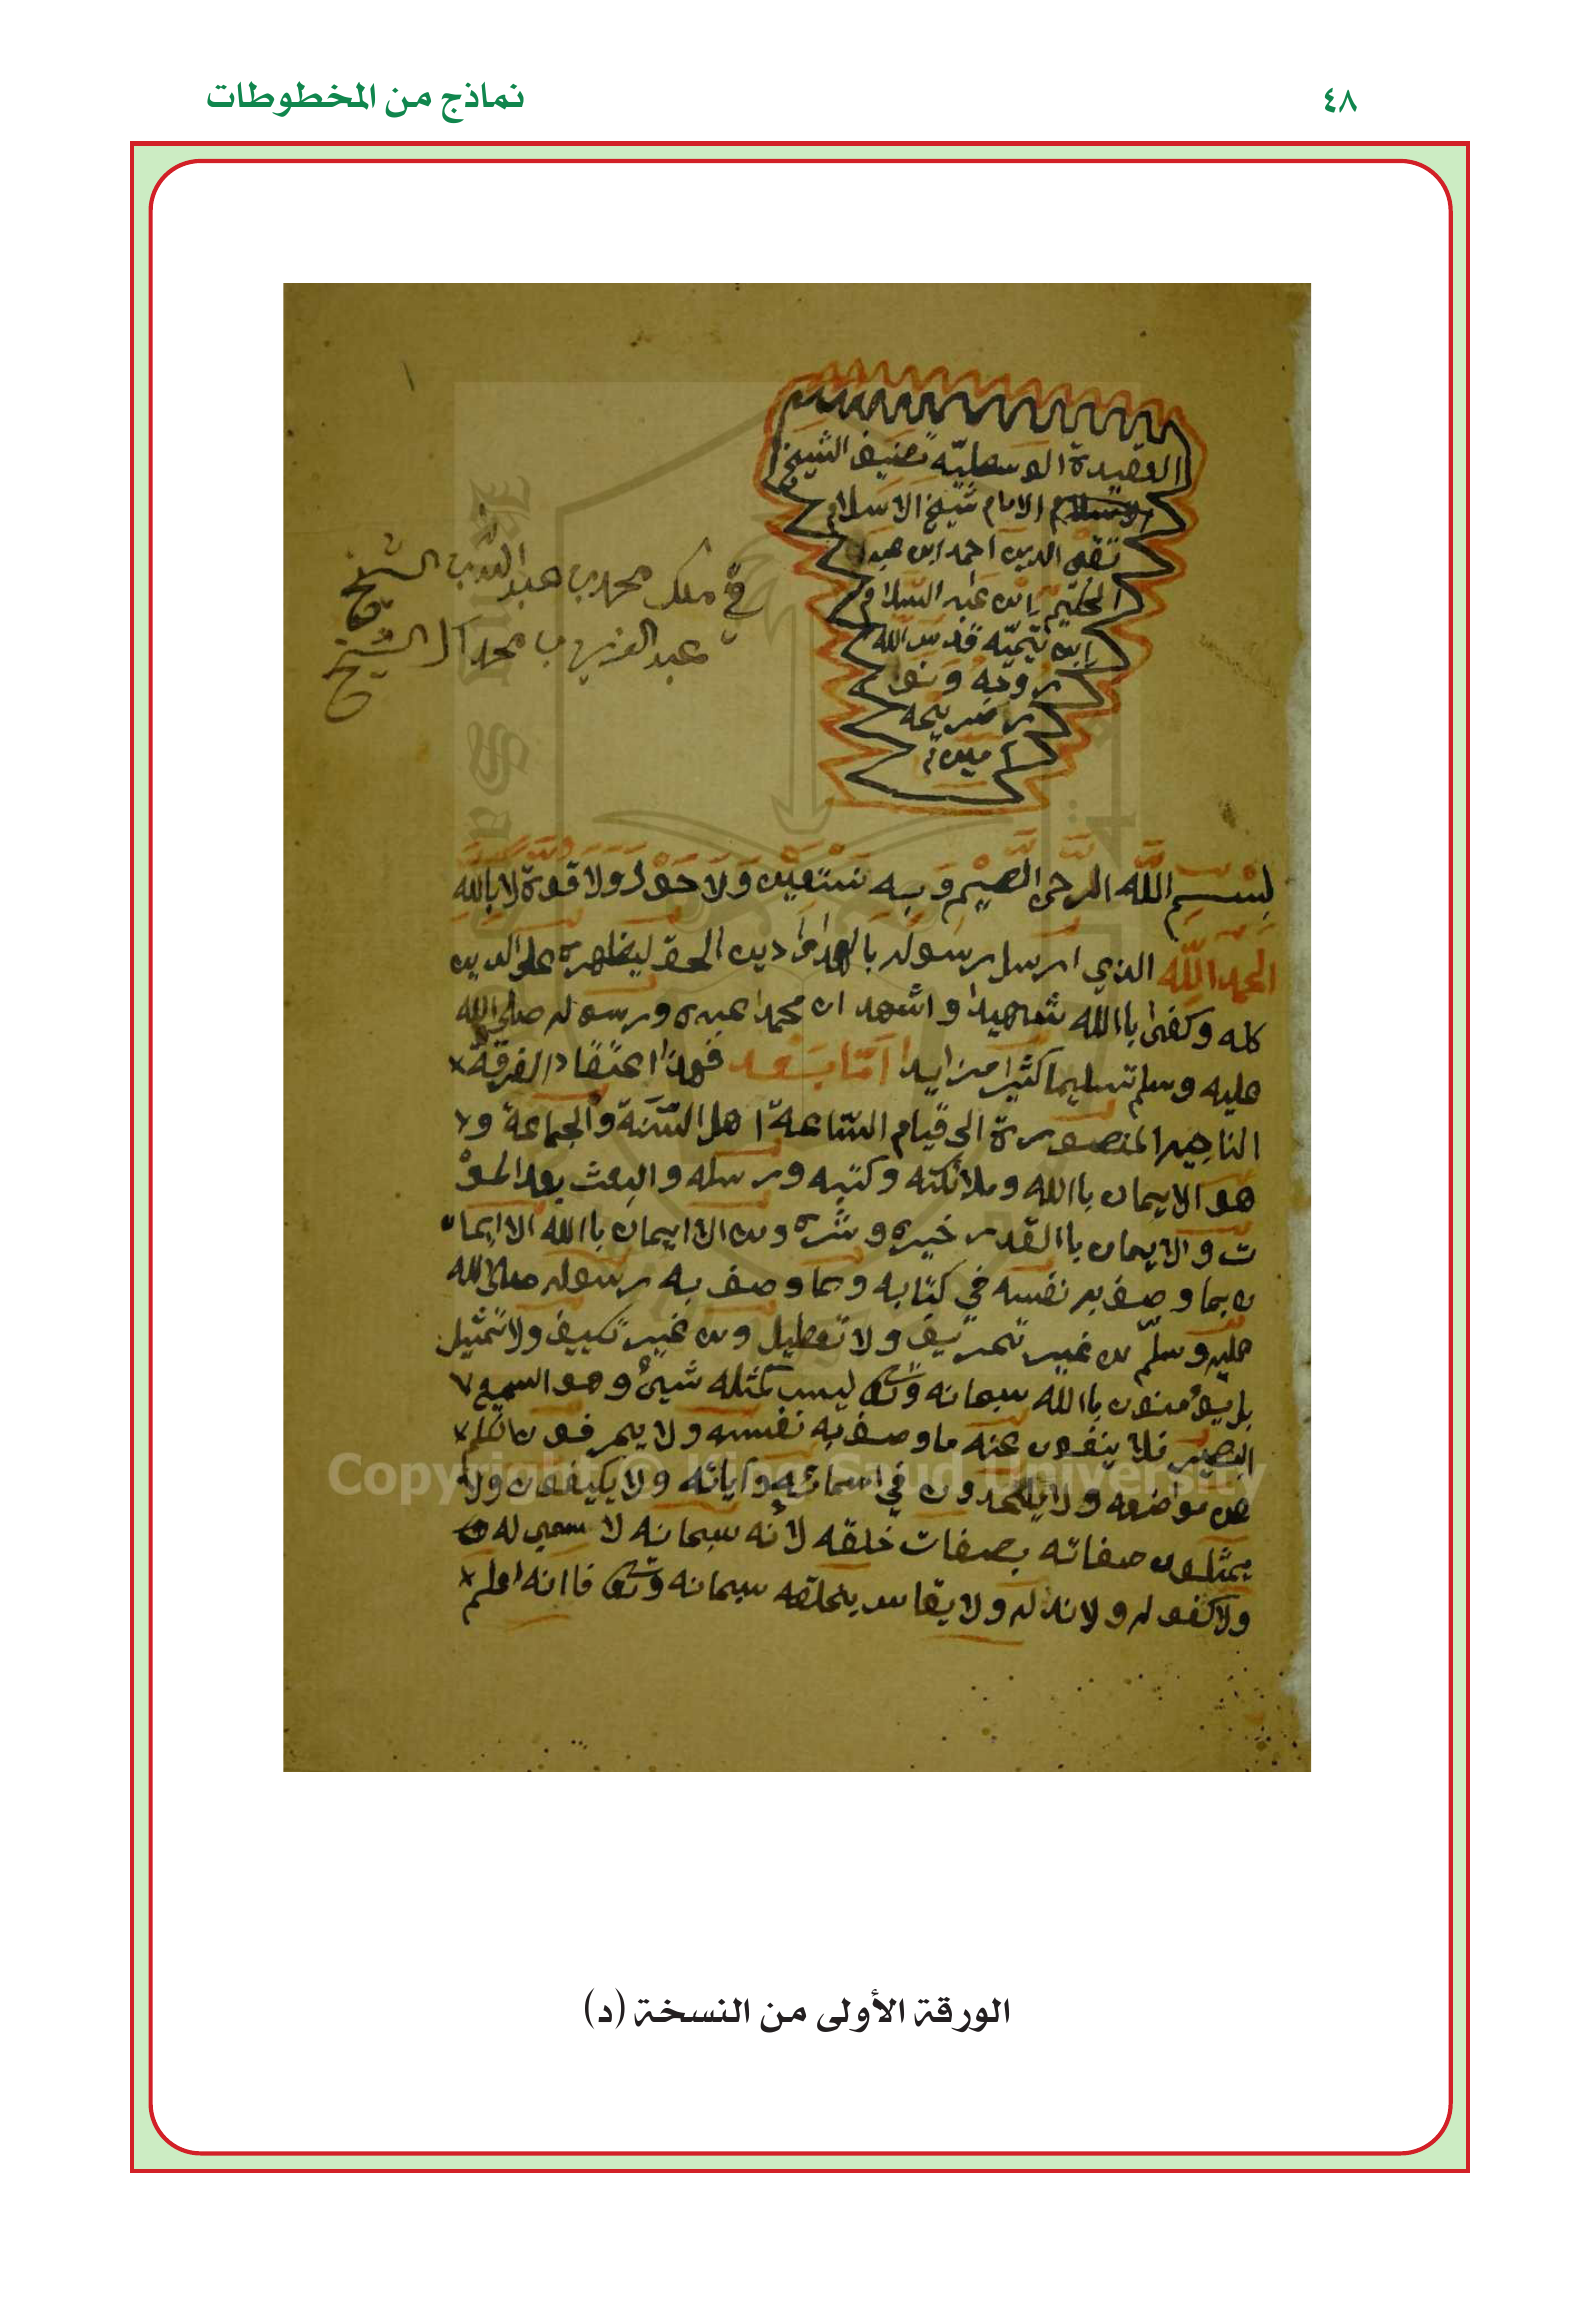 ٤٨
نماذج من المخطوطات
العقيدة الوسطيّه تصنيف الشيخ
الامام شيخ الاسلام
تقي الدين احمد ابن عبد
الحليم ابن عبد السلام
ابن تيميّه قدس الله
روحه ونور
ضريحه
آمين
في ملك محمد بن عبد اللطيف الشيخ
عبد العزيز بن محمد آل الشيخ
بسم الله الرحمن الرحيم وبه نستعين ولا حول ولا قوة الا بالله
الحمد الله الذي ارسل رسوله بالهدى ودين الحق ليظهره على الدين
كله وكفى باالله شهيدا واشهد ان محمدا عبده ورسوله صلى الله
عليه وسلم تسليما كثيرا مزايدا أمّا بَعد فهذا اعتقاد الفرقة
الناجيه المنصورة الى قيام السّاعة اهل السّنة والجماعة و
هو الايمان باالله وملائكته وكتبه ورسله والبعث بعد المو
ت والايمان باالقدر خيره وشره ومن الاايمان باالله الاايما
ن بما وصف به نفسه في كتابه وبما وصف به رسوله صلى الله
عليه وسلّم من غير تحريف ولا تعطيل ومن غير تكييف ولا تمثيل
بل يؤمنون باالله سبحانه وتعالى ليس كمثله شيئ وهو السميع
البصير فلا ينفون عنه ماوصف به نفسه ولا يحرفون الكلم
عن مواضعه ولا يلحدون في اسمائه وآياته ولا يكيفون ولا
يمثلون صفاته بصفات خلقه لأنه سبحانه لا سمي له
ولا كفو له ولا ند له ولا يقاس بخلقه سبحانه وتعالى فاانه اعلم
Copyright © King Saud University
الورقة الأولى من النسخة (د)